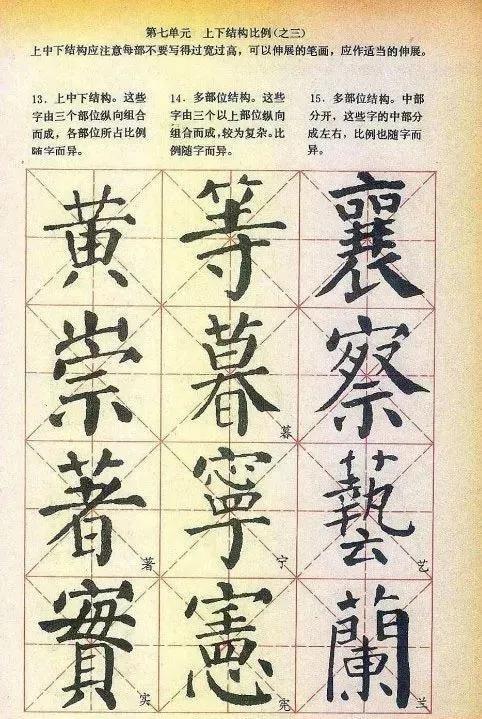 第七单元 上下结构比例(之三)
上中下结构应注意每部不要写得过宽过高,可以伸展的笔画,应作适当的伸展。
13.上中下结构。这些
字由三个部位纵向组合
而成,各部位所占比例
随字而异。
14.多部位结构。这些
字由三个以上部位纵向
组合而成,较为复杂。比
例随字而异。
15.多部位结构。中部
分开,这些字的中部分
成左右,比例也随字而
异。
黄 等 襄
崇 暮 察
暮
著 寧 藝
著 宁 艺
實 憲 蘭
实 宪 兰